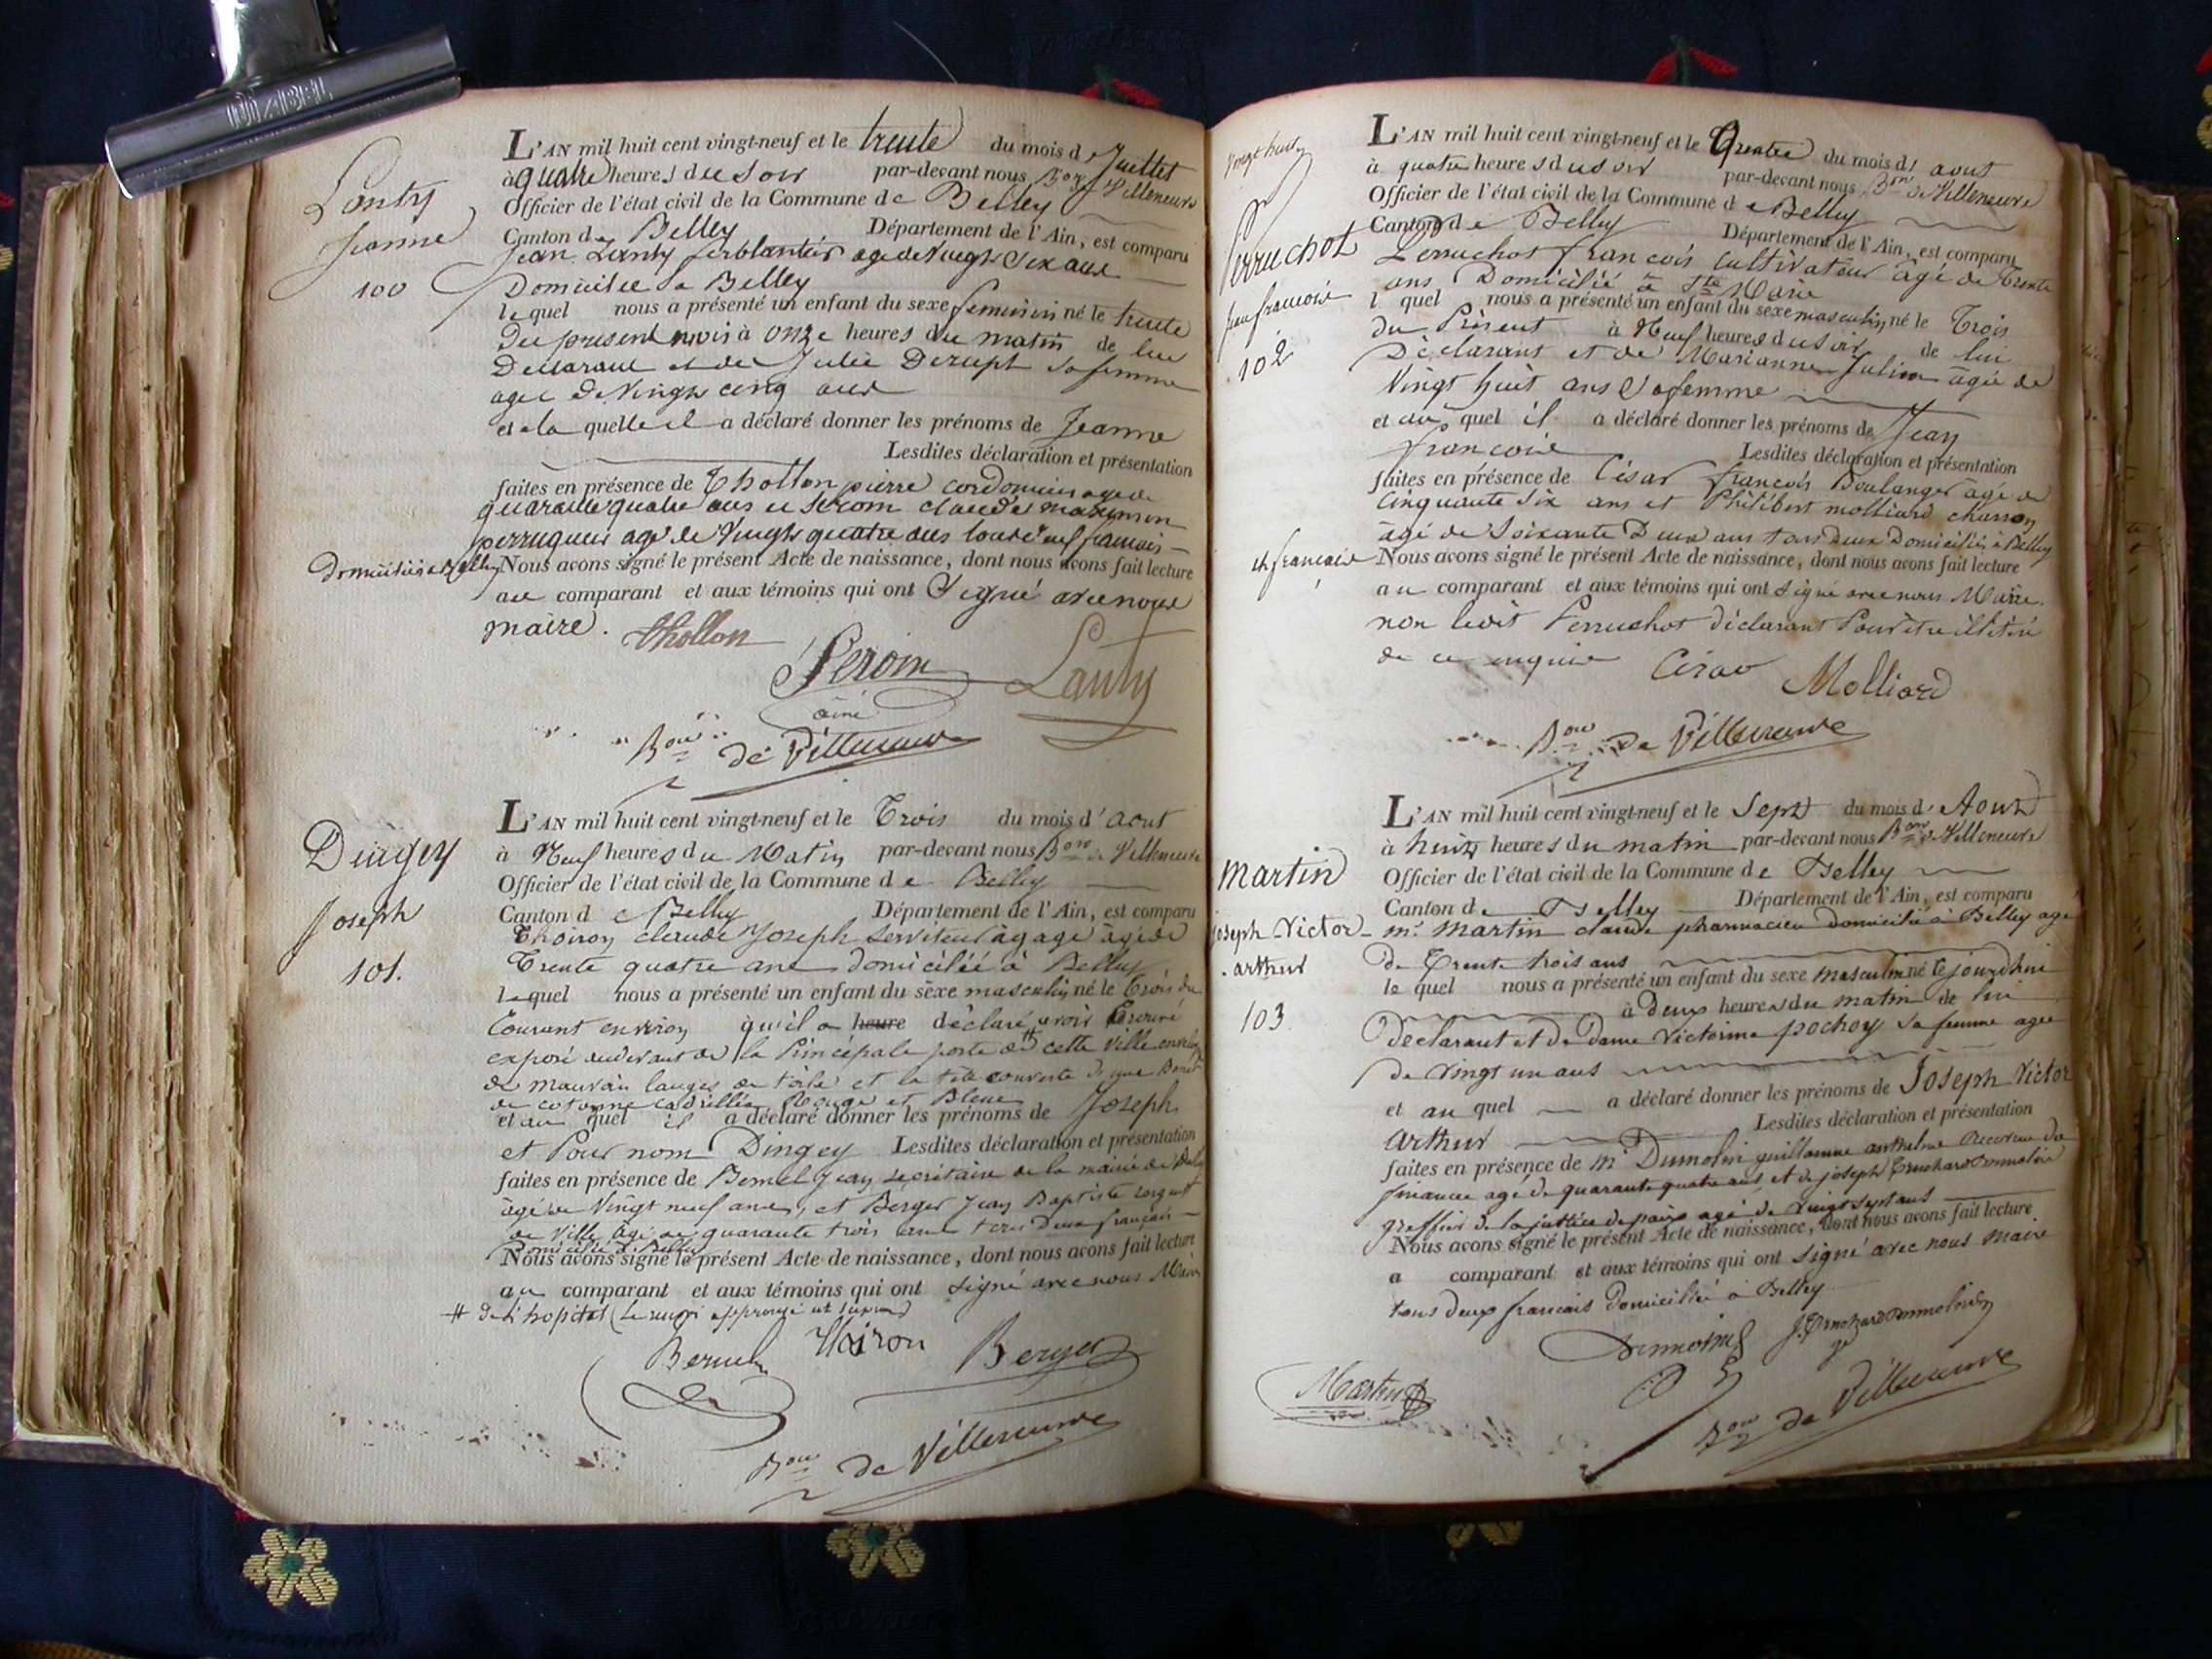 DIABEL
Lanty
Jeanne
100
L'AN mil huit cent vingt-neuf et le trente du mois de Juillet
à quatre heures du soir par-devant nous Bon de Villeneuve
Officier de l'état civil de la Commune de Belley
Canton de Belley Département de l'Ain, est comparu
Jean Lanty ferblantier agé de Vingt Six ans
Domicilié a Belley
lequel nous a présenté un enfant du sexe feminin né le trente
du present mois à onze heures du matin de lui
Declarant et de Julie Deruph sa femme
agée de Vingt cinq ans
et a la quelle il a déclaré donner les prénoms de Jeanne
Lesdites déclaration et présentation
faites en présence de Thollon pierre cordonnier agé de
quarante quatre ans et Seroin claude
perruquier agé de Vingt quatre ans tous deux français
domiciliés a Belley Nous avons signé le présent Acte de naissance, dont nous avons fait lecture
au comparant et aux témoins qui ont Signé avec nous
maire.
thollon
Seroin
ainé
Lanty
Bon de Villeneuve
Dingey
Joseph
101.
L'AN mil huit cent vingt-neuf et le Trois du mois d'aout
à Neuf heures du Matin par-devant nous Bon de Villeneuve
Officier de l'état civil de la Commune de Belley
Canton de Belley Département de l'Ain, est comparu
Thoiron claude Joseph Serviteur à gage âgé de
Trente quatre ans domicilié à Belley
lequel nous a présenté un enfant du sexe masculin né le Trois du
Courant environ qu'il a heure déclaré avoir trouvé
exposé audevant de la Principale porte de # cette Ville enveloppé
de mauvais langes de toile et la tête couverte d'une Bonet
de cotonne cadrillée Rouge et Bleue
et au quel il a déclaré donner les prénoms de Joseph
et Pour nom Dingey Lesdites déclaration et présentation
faites en présence de Bernel Jean secrétaire de la mairie de Belley
âgé de Vingt neuf ans, et Berger Jean Baptiste sergent
de Ville âgé de quarante trois ans tous Deux français
Domiciliés à Belley
Nous avons signé le présent Acte de naissance, dont nous avons fait lecture
au comparant et aux témoins qui ont signé avec nous Maire
# de l'hopital (le renvoi approuvé ut supra)
Bernel
Thoiron
Berger
Bon de Villeneuve
Perruchot
Jean françois
102
L'AN mil huit cent vingt-neuf et le Quatre du mois d'aout
à quatre heures du soir par-devant nous Bon de Villeneuve
Officier de l'état civil de la Commune de Belley
Canton de Belley Département de l'Ain, est comparu
Perruchot françois Cultivateur âgé de Trente
ans Domicilié à Ste Marie
lequel nous a présenté un enfant du sexe masculin né le Trois
du Présent à Neuf heures du soir de lui
Déclarant et de Marianne Julien âgée de
Vingt huit ans Sa femme
et au quel il a déclaré donner les prénoms de Jean
françois Lesdites déclaration et présentation
faites en présence de César françois Boulanger âgé de
Cinquante Six ans et Philibert molliard charron
âgé de Soixante Deux ans tous deux Domiciliés à Belley
et français Nous avons signé le présent Acte de naissance, dont nous avons fait lecture
au comparant et aux témoins qui ont signé avec nous Maire
non ledit Perruchot déclarant Pour être illitéré
de ce enquis
César
Molliard
Bon de Villeneuve
Martin
Joseph Victor
arthur
103
L'AN mil huit cent vingt-neuf et le Sept du mois d'Aout
à huit heures du matin par-devant nous Bon de Villeneuve
Officier de l'état civil de la Commune de Belley
Canton de Belley Département de l'Ain, est comparu
mr Martin claude pharmacien domicilié à Belley agé
de Trente trois ans
le quel nous a présenté un enfant du sexe masculin né le jourdhui
à deux heures du matin de lui
Declarant et de Dame Victorine pochoy sa femme agée
de vingt un ans
et au quel a déclaré donner les prénoms de Joseph Victor
arthur Lesdites déclaration et présentation
faites en présence de mr Dumolin guillaume anthelme Receveur de
finances agé de quarante quatre ans et de joseph
greffier de la justice de paix agé de Vingt sept ans
Nous avons signé le présent Acte de naissance, dont nous avons fait lecture
a comparant et aux témoins qui ont signé avec nous maire
tous deux francais Domicilié à Belley
Martin
Bon de Villeneuve